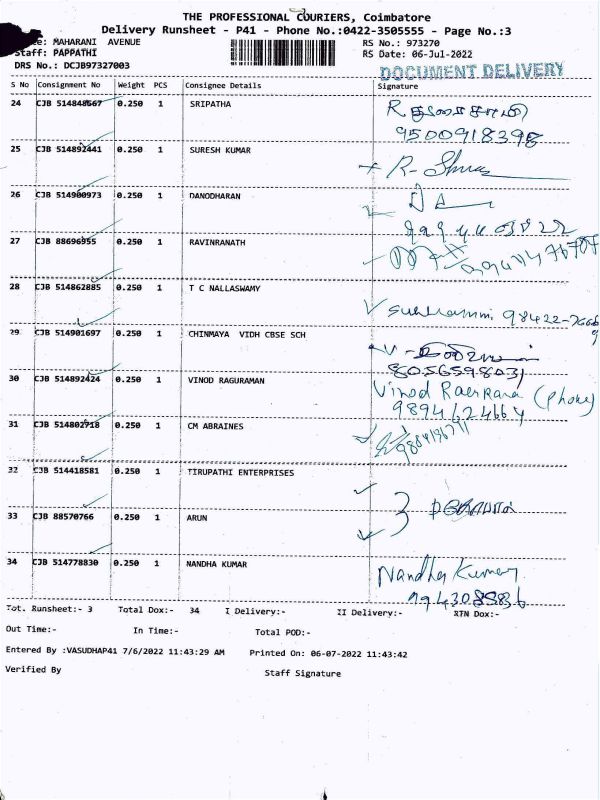 THE PROFESSIONAL COURIERS, Coimbatore
Delivery Runsheet - P41 - Phone No.:0422-3505555 - Page No.:3
MAHARANI AVENUE RS No.: 973270
Staff: PAPPATHI RS Date: 06-Jul-2022
DRS No.: DCJB97327003 DOCUMENT DELIVERY
S No Consignment No Weight PCS Consignee Details Signature
24 CJB 514848667 0.250 1 SRIPATHA
9500918398
25 CJB 514892441 0.250 1 SURESH KUMAR
26 CJB 514900973 0.250 1 DANODHARAN
27 CJB 88696955 0.250 1 RAVINRANATH
28 CJB 514862885 0.250 1 T C NALLASWAMY
29 CJB 514901697 0.250 1 CHINMAYA VIDH CBSE SCH
8056598031
30 CJB 514892424 0.250 1 VINOD RAGURAMAN Vinod (Phone)
9894624664
31 CJB 514802718 0.250 1 CM ABRAINES
32 CJB 514418581 0.250 1 TIRUPATHI ENTERPRISES
33 CJB 88570766 0.250 1 ARUN
34 CJB 514778830 0.250 1 NANDHA KUMAR Nandha Kumar
Tot. Runsheet:- 3 Total Dox:- 34 I Delivery:- II Delivery:- RTN Dox:-
Out Time:- In Time:- Total POD:-
Entered By :VASUDHAP41 7/6/2022 11:43:29 AM Printed On: 06-07-2022 11:43:42
Verified By Staff Signature